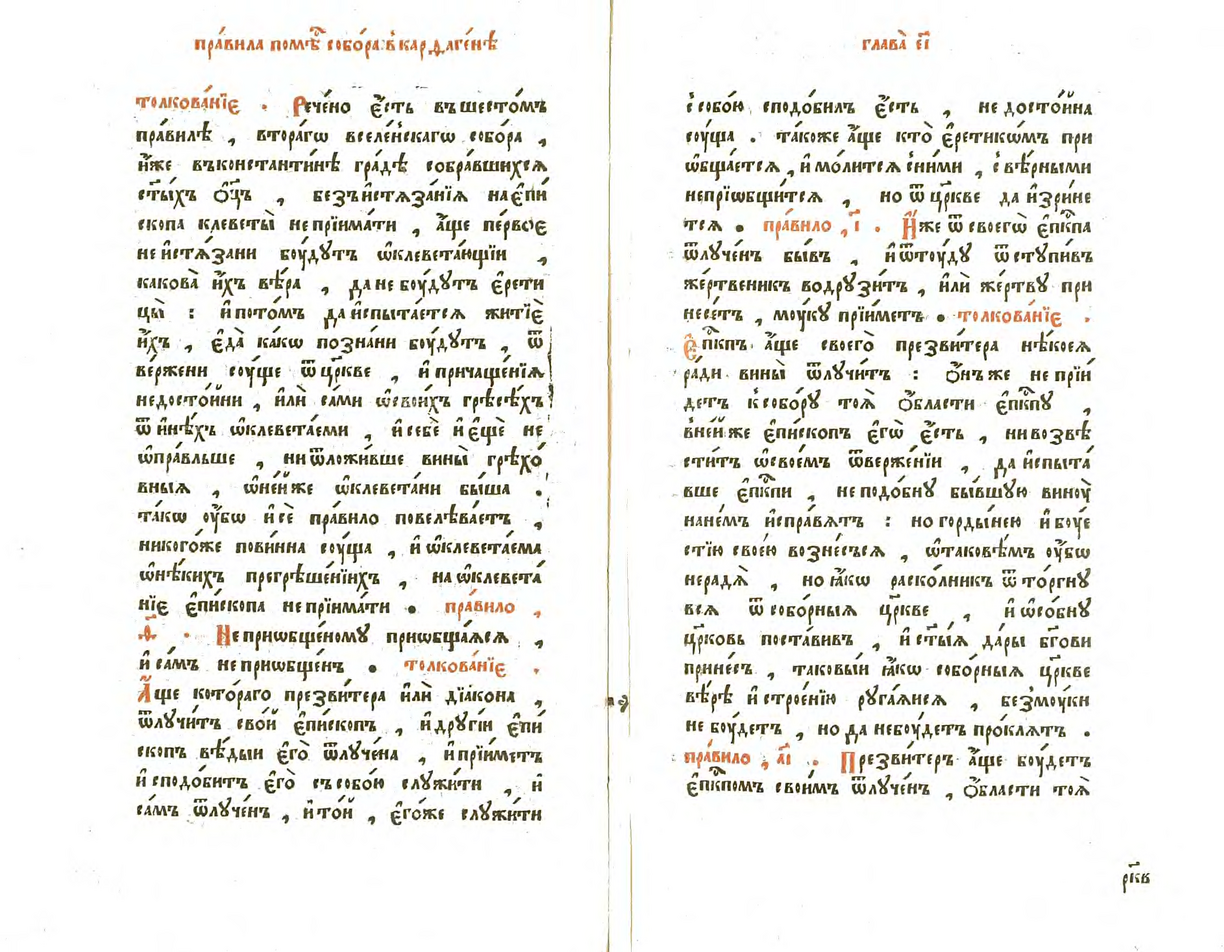 пра́вила помѣ́ⷭ҇ собо́ра в̾карѳаге́нѣ
толкова́нїє . Рече́но є҆́сть въшесто́мъ
пра́вилѣ , второ́гѡ вселе́нскагѡ собо́ра ,
и҆́же въконстанти́нѣ гра́дѣ собра́вшихсѧ
ст҃ы́хъ ѻ҆ц҃ъ , безъи҆стѧза́нїѧ наєпи́
скопа клеветы̀ непрїима́ти , а҆́ще пе́рвоє
неи҆стѧ́зани боу́дутъ ѡ҆клевета́ющїи ,
какова̀ и҆́хъ вѣ́ра , данебоу́дутъ є҆рети
цы̀ : и҆пото́мъ даи҆спыта́етсѧ житїѐ
и҆́хъ , є҆да̀ ка́кѡ позна́ни боу́дутъ , ѿ
ве́ржени соу́ще ѿцр҃кве , и҆причаще́нїѧ
недосто́йни , и҆лѝ са́ми ѡ҆свои́хъ грѣсѣ́хъ
ѿи҆нѣ́хъ ѡ҆клевета́еми , и҆себѐ и҆є҆щѐ не
ѡ҆пра́вльше , ниѿложи́вше вины̀ грѣхо́
вныѧ , ѡ҆не́йже ѡ҆клевета́ни бы́ша .
та́кѡ оу҆́бѡ и҆сѐ пра́вило повелѣва́етъ ,
никого́же пови́нна соу́ща , и҆ѡ҆клевета́ема
ѡ҆нѣ́кихъ прегрѣше́нїихъ , наѡ҆клевета́
нїє є҆пи́скопа непрїима́ти . пра́вило ,
ѳ҃ . Неприѡбще́ному приѡбща́ѧсѧ ,
и҆са́мъ неприѡбще́нъ . толкова́нїє .
А҆́ще кото́раго презви́тера и҆лѝ дїа́кона ,
ѿлучи́тъ сво́й є҆пи́скопъ , и҆другі́й є҆пи́
скопъ вѣ́дыи є҆го̀ ѿлуче́на , и҆прїи́метъ
и҆сподо́битъ є҆го̀ съсобо́ю служи́ти , и҆
са́мъ ѿлуче́нъ , и҆то́й , є҆го́же служи́ти
глава̀ є҃і
с̾собо́ю сподо́билъ є҆́сть , недосто́йна
соу́ща . та́коже а҆́ще кто̀ є҆ретикѡ́мъ при
ѡбща́етсѧ , и҆мо́литсѧ с̾ни́ми , с̾вѣ́рными
непрїѡбщи́тсѧ , но ѿцр҃кве да и҆зри́не
тсѧ . пра́вило , і҃ . И҆́же ѿсвоегѡ̀ є҆пⷭ҇кпа
ѿлуче́н бы́въ , и҆ѿтоу́ду ѿступи́въ
же́ртвеникъ водрузи́тъ , и҆лѝ же́ртву при
несе́тъ , моу́ку прїи́метъ . толкова́нїє .
Є҆пⷭ҇кпъ а҆́ще своего̀ презви́тера нѣ́коеѧ
ра́ди вины̀ ѿлучи́тъ : ѻ҆́нъже не прїи́
детъ к̾собо́ру тоѧ̀ ѻ҆́бласти є҆пⷭ҇кпу ,
в̾не́йже є҆пи́скопъ є҆гѡ̀ є҆́сть , нивозвѣ
сти́тъ ѡ҆свое́мъ ѿверже́нїи , даи҆спыта́
вше є҆пⷭ҇кпи , неподо́бну бы́вшую виноу̀
нане́мъ и҆спра́вѧтъ : ногорды́нею и҆боу́е
стїю свое́ю вознесъ́сѧ , ѡ҆таковѣ́мъ оу҆́бѡ
нерадѧ̀ , но ꙗ҆́кѡ раско́лникъ ѿто́ргну
всѧ ѿсобо́рныѧ цр҃кве , и҆ѡ҆со́бну
цр҃ковь поста́вивъ , и҆ст҃ы́ѧ да́ры бг҃ови
прине́съ , таковы́й ꙗ҆́кѡ собо́рныѧ цр҃кве
вѣ́рѣ и҆строе́нїю руга́ѧисѧ , безмоу́ки
не боу́детъ , но да небоу́детъ про́клѧтъ .
пра́вило , а҃і . Презви́теръ а҆́ще боу́детъ
є҆пⷭ҇кпомъ свои́мъ ѿлуче́нъ , ѻ҆́бласти тоѧ̀
рк҃в